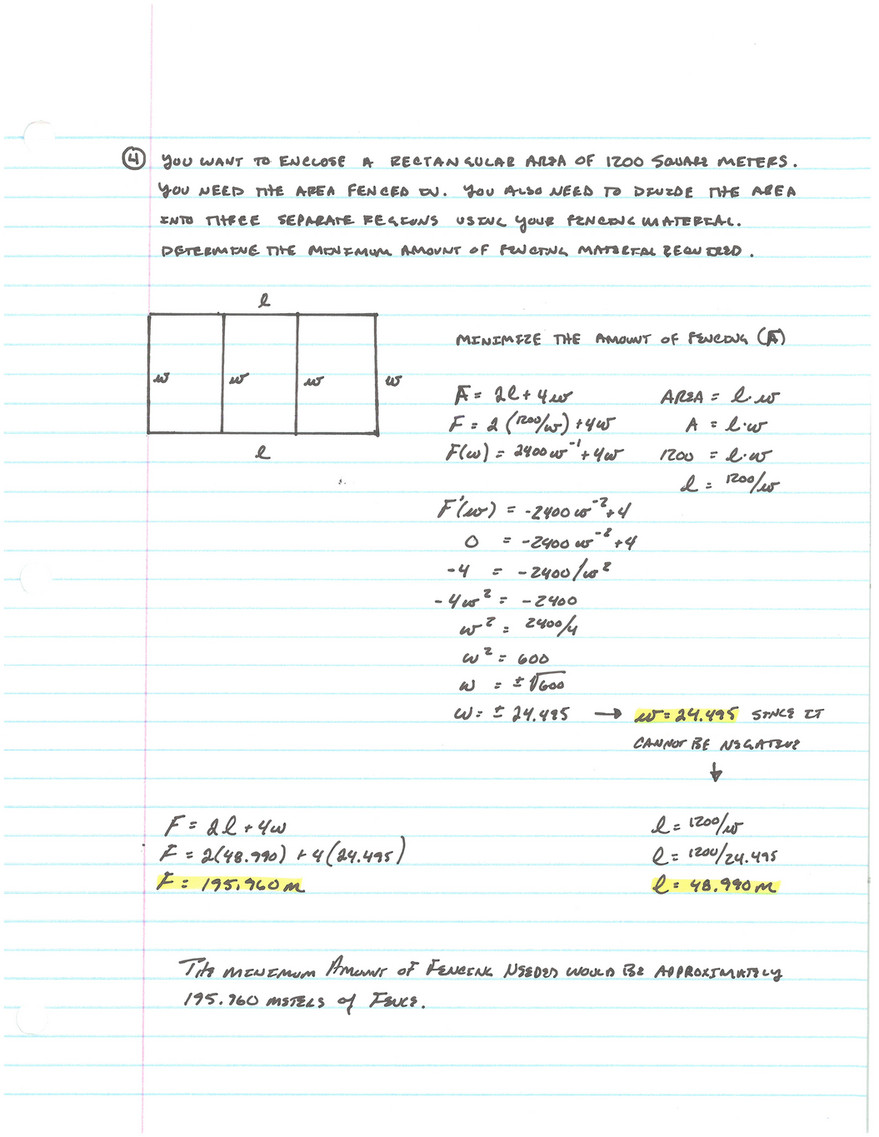 ④ YOU WANT TO ENCLOSE A RECTANGULAR AREA OF 1200 SQUARE METERS.
YOU NEED THE AREA FENCED IN. YOU ALSO NEED TO DIVIDE THE AREA
INTO THREE SEPARATE REGIONS USING YOUR FENCING MATERIAL.
DETERMINE THE MINIMUM AMOUNT OF FENCING MATERIAL REQUIRED.
l
w w w w
l
MINIMIZE THE AMOUNT OF FENCING (F)
F = 2l + 4w
F = 2(1200/w) + 4w
F(w) = 2400w⁻¹ + 4w
AREA = l·w
A = l·w
1200 = l·w
l = 1200/w
F'(w) = -2400w⁻² + 4
0 = -2400w⁻² + 4
-4 = -2400/w²
-4w² = -2400
w² = 2400/4
w² = 600
w = ±√600
w = ± 24.495 → w = 24.495 SINCE IT
CANNOT BE NEGATIVE
↓
l = 1200/w
l = 1200/24.495
l = 48.990 m
F = 2l + 4w
F = 2(48.990) + 4(24.495)
F = 195.960 m
THE MINIMUM AMOUNT OF FENCING NEEDED WOULD BE APPROXIMATELY
195.960 METERS of FENCE.